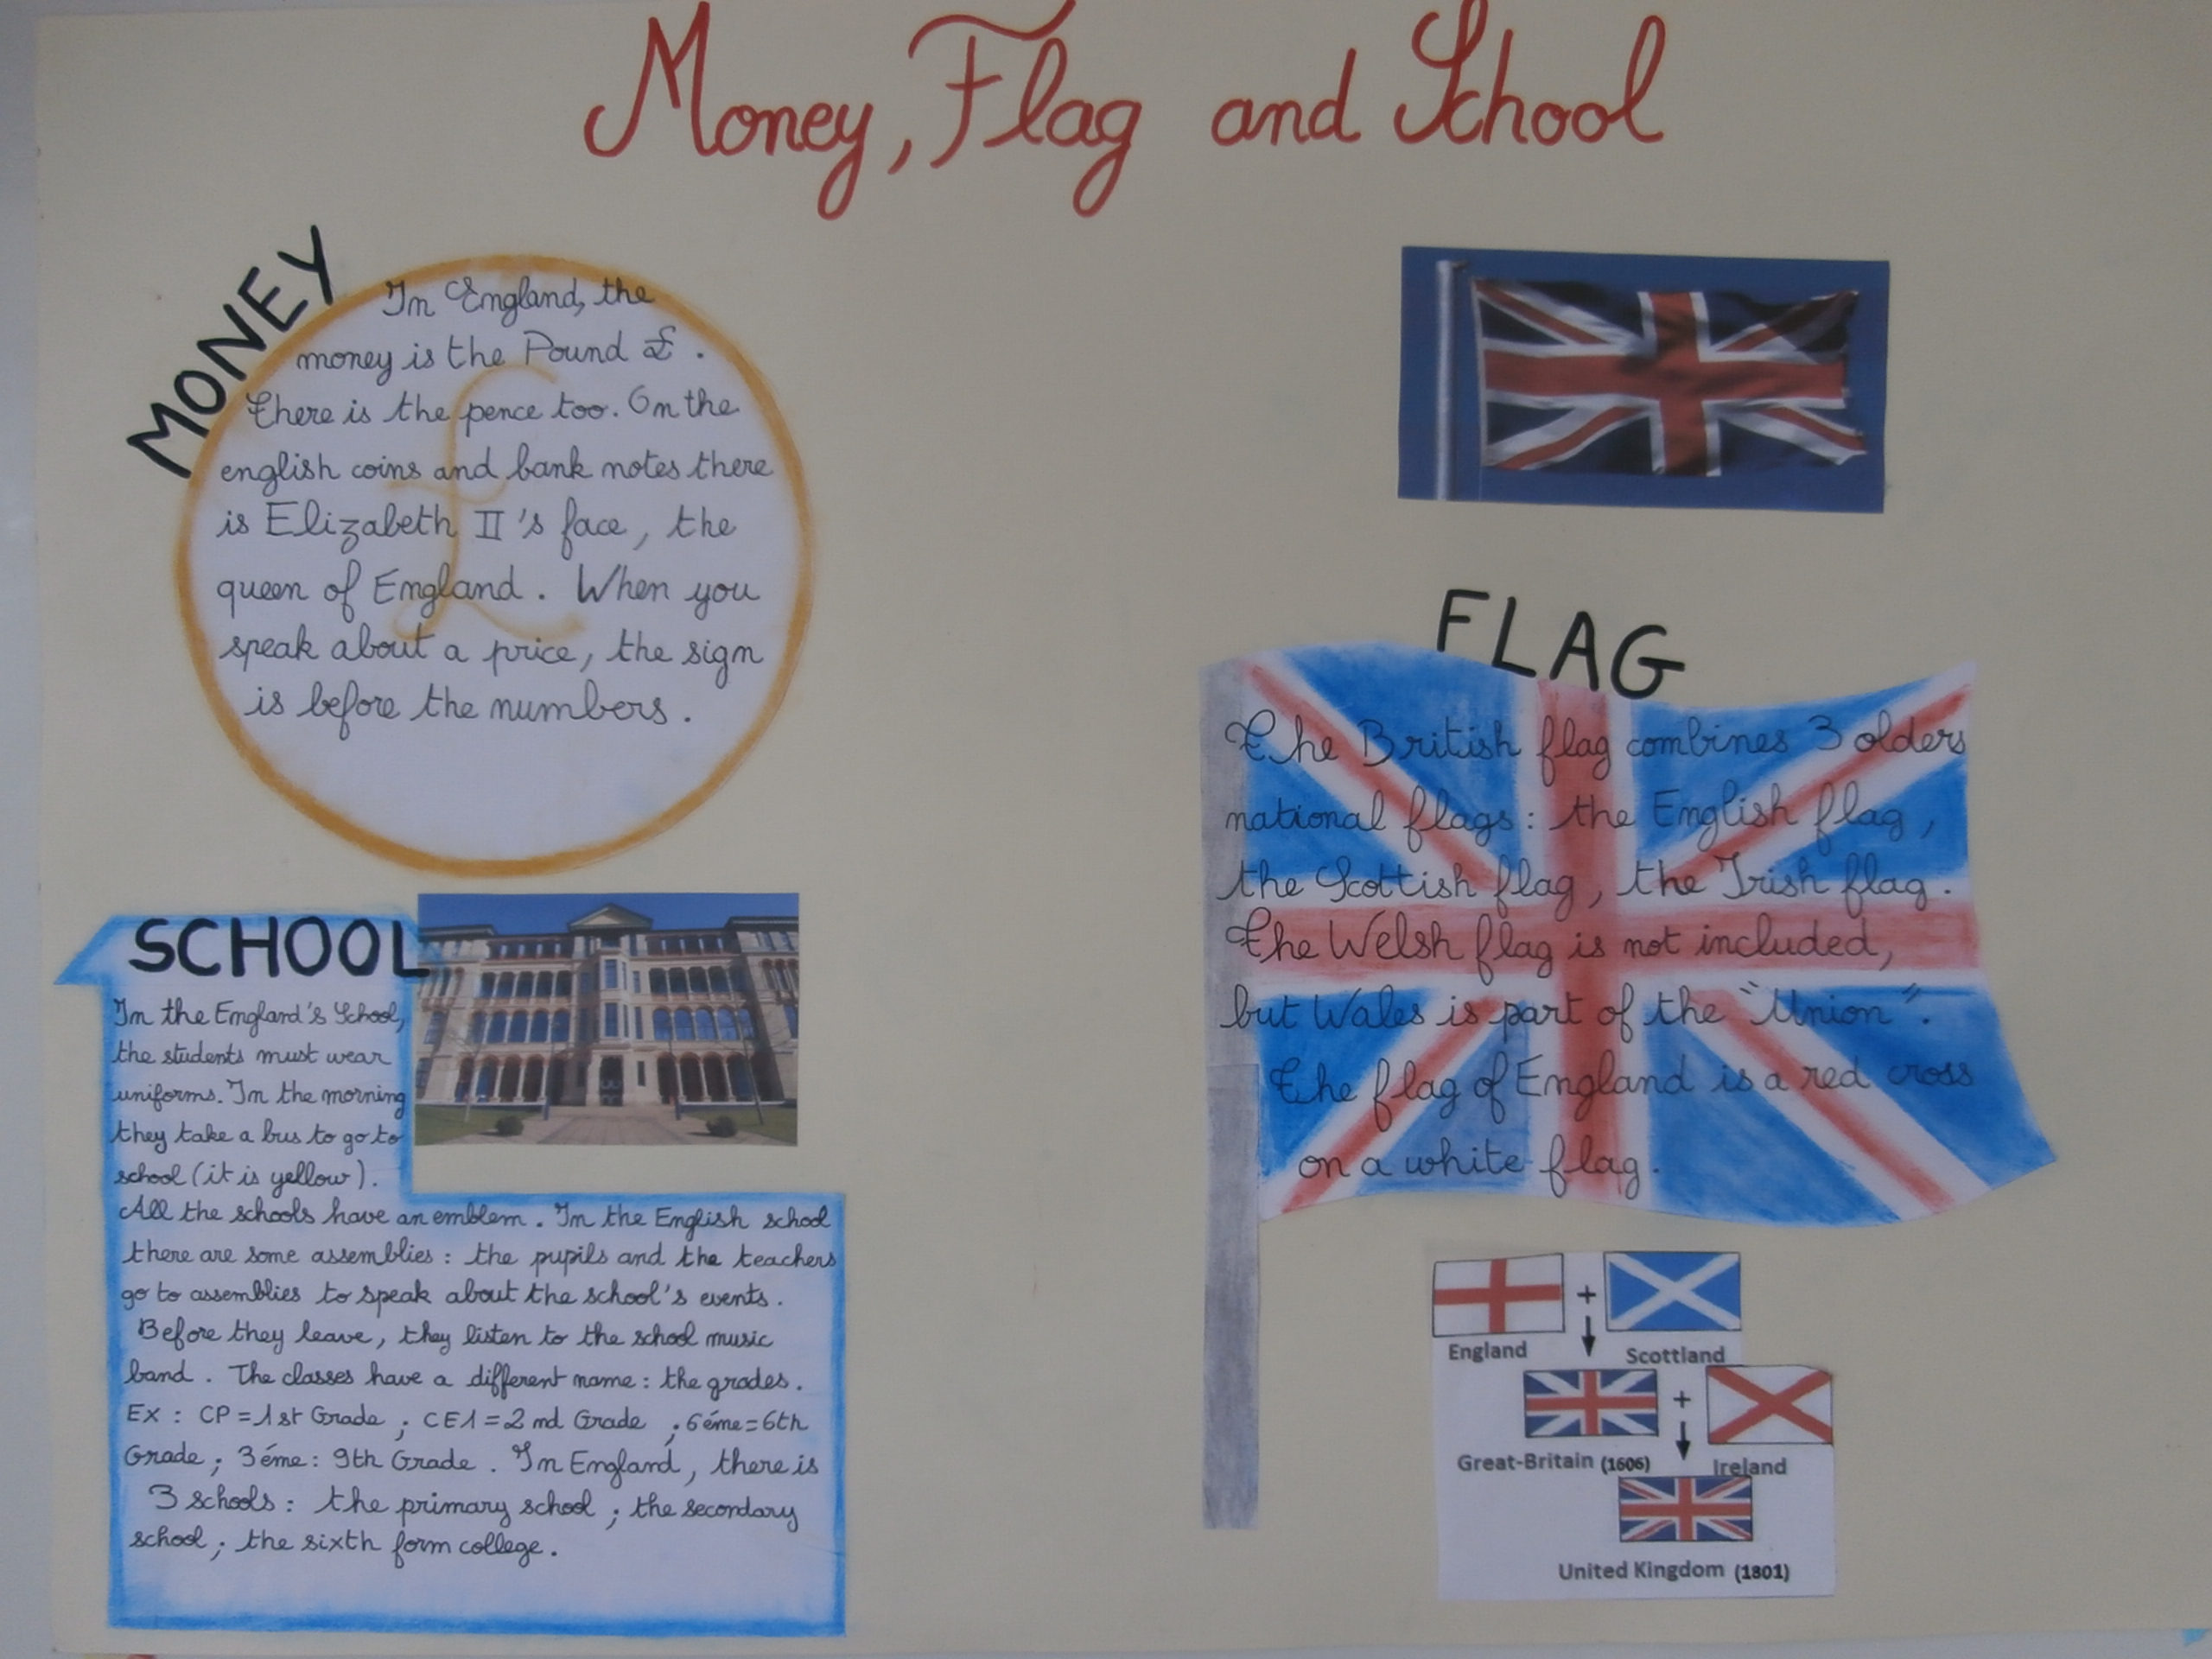 Money, Flag and School
MONEY
In England, the
money is the Pound £.
There is the pence too. On the
english coins and bank notes there
is Elizabeth II's face, the
queen of England. When you
speak about a price, the sign
is before the numbers.
£
SCHOOL
In the England's School,
the students must wear
uniforms. In the morning
they take a bus to go to
school (it is yellow).
All the schools have an emblem. In the English school
there are some assemblies: the pupils and the teachers
go to assemblies to speak about the school's events.
Before they leave, they listen to the school music
band. The classes have a different name: the grades.
EX: CP=1st Grade; CE1=2nd Grade; 6éme=6th
Grade; 3éme: 9th Grade. In England, there is
3 schools: the primary school; the secondary
school; the sixth form college.
FLAG
The British flag combines 3 olders
national flags: the English flag,
the Scottish flag, the Irish flag.
The Welsh flag is not included,
but Wales is part of the "Union".
The flag of England is a red cross
on a white flag.
+
England Scottland
+
Great-Britain (1606) Ireland
United Kingdom (1801)